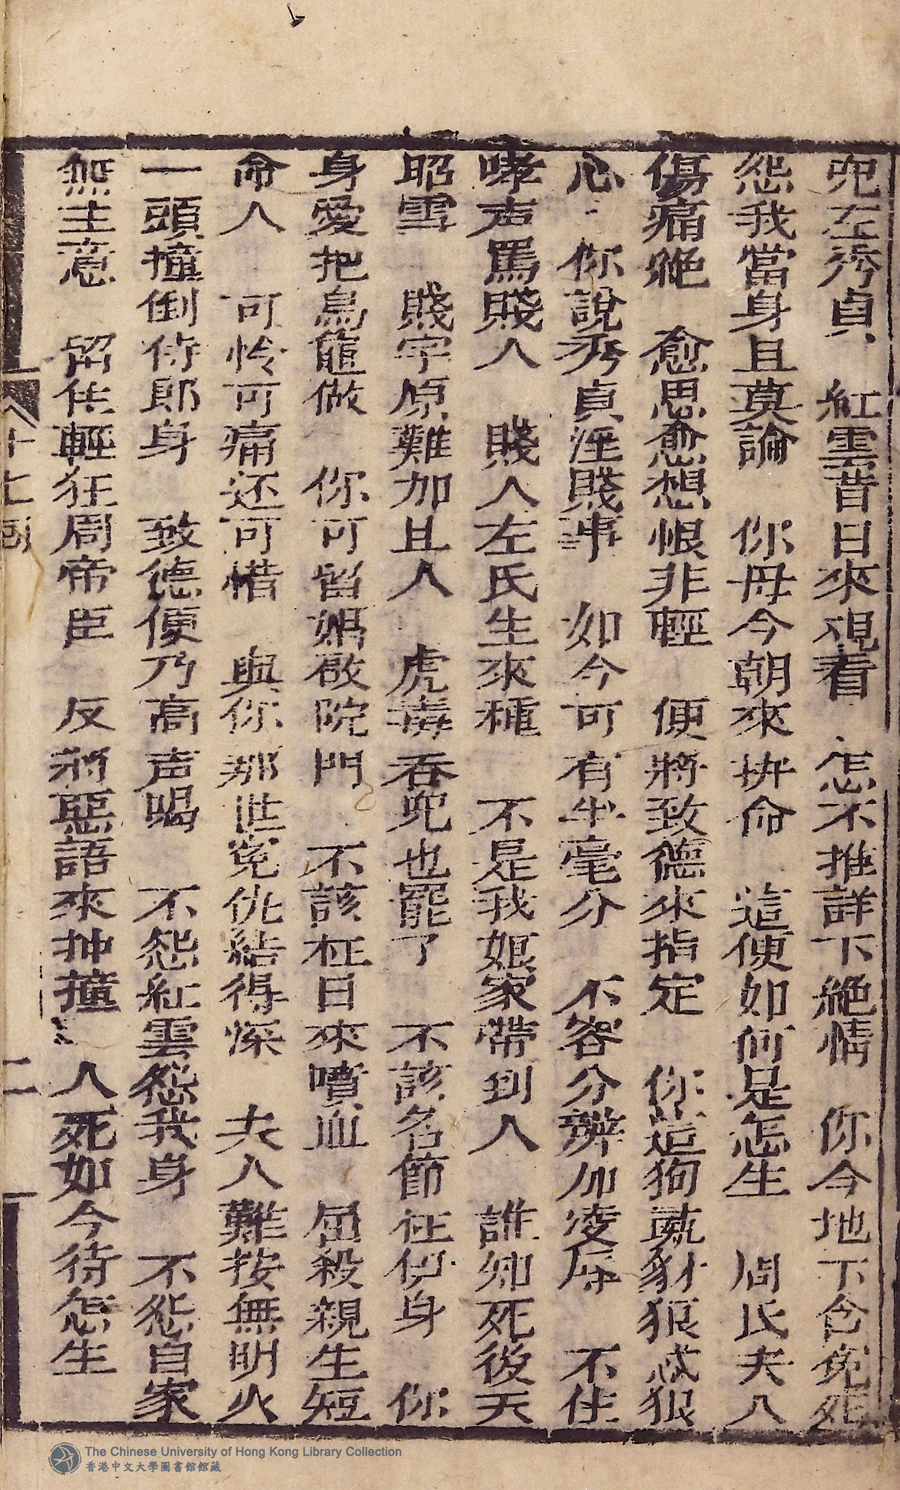 兜左秀貞　紅雲昔日來覌看　怎不推詳下絕情　你今地下含寃死
怨我當身且莫論　你毋今朝來拚命　這便如何是怎生　周氏夫人
傷痛絕　愈思愈想恨非輕　便將致德來指定　你這狗彘豺狼忒狠
心　你說秀貞淫賤事　如今可有半毫分　不容分辨加凌辱　不住
哮声罵賤人　賤人左氏生來種　不是我娘家帶到人　誰知死後天
昭雪　賤字原難加且人　虎毒吞兜也罷了　不該名節汪伊身　你
身愛把烏龍做　你可留媧啟院門　不該枉日來噴血　屈殺親生短
命人　可怜可痛还可惜　與你那世寃仇結得深　夫人難按無明火
一頭撞倒侍郎身　致德便乃高声喝　不怨紅雲怨我身　不怨自家
無主意　留佐輕狂周帝臣　反將惡語來抻撞　人死如今待怎生
十七囬
二
The Chinese University of Hong Kong Library Collection
香港中文大學圖書館館藏